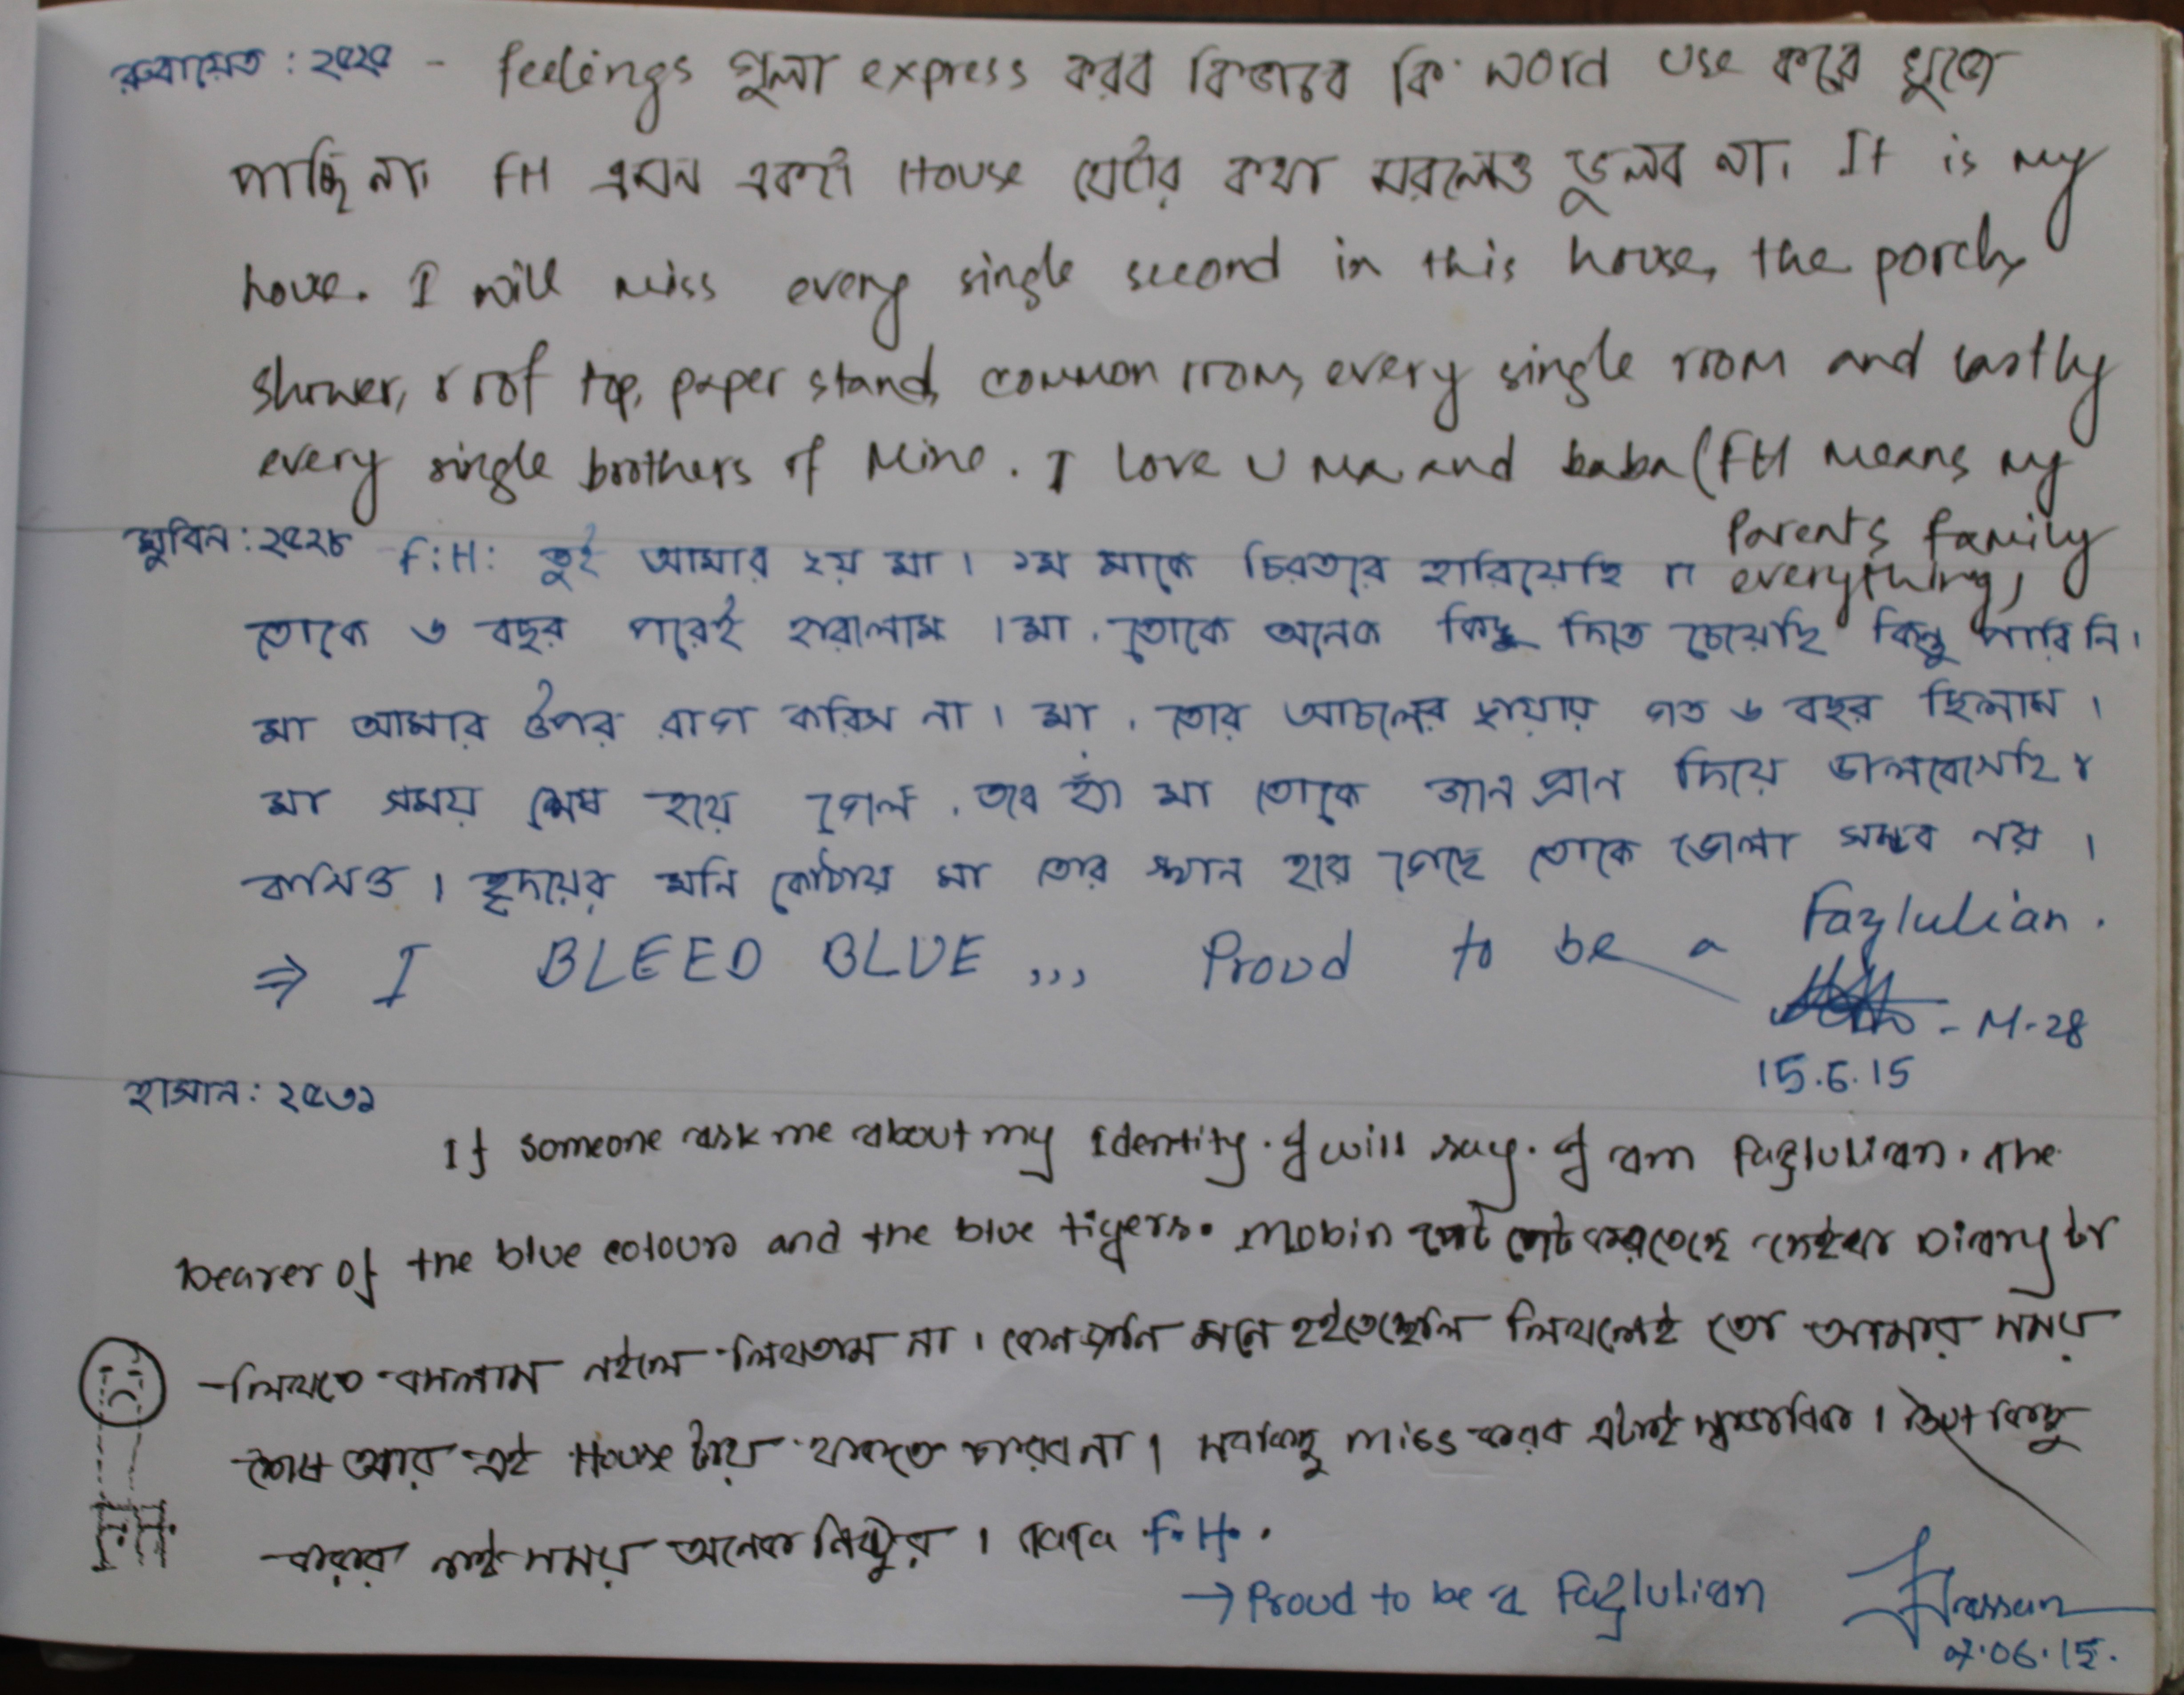 রুবায়েত : ২৫২৫ - feelings গুলা express করব কিভাবে কি word use করে খুজে
পাচ্ছি না। FH এমন একটা House যেটার কথা মরলেও ভুলব না। It is my
house. I will miss every single second in this house, the porch,
shower, roof top, paper stand, common room, every single room and lastly
every single brothers of Mine. I Love U ma and baba (FH Means my
Parents, family
everything)
মুবিন : ২৫২৮ F:H: তুই আমার ২য় মা। ১ম মাকে চিরতরে হারিয়েছি
তোকে ৬ বছর পরেই হারালাম। মা, তোকে অনেক কিছু দিতে চেয়েছি কিন্তু পারিনি।
মা আমার উপর রাগ করিস না। মা, তোর আচলের ছায়ায় গত ৬ বছর ছিলাম।
মা সময় শেষ হয়ে গেল, তবে হ্যাঁ মা তোকে জান প্রান দিয়ে ভালবেসেছি
বাসিও। হৃদয়ের মনি কোঠায় মা তোর স্থান হয়ে গেছে তোকে ভোলা সম্ভব নয়।
⇒ I BLEED BLUE ,,, Proud to be a Fazlulian.
- M-28
15.6.15
হাসান : ২৫৩১
If someone ask me about my Identity. I will say. I am Fazlulian. The
bearer of the blue colours and the blue tigers. Mobin Diary তে
লিখতে বসলাম নইলে লিখতাম না। কেন জানি মনে হইতেছিল লিখলেই তো আমার সময়
শেষ আর এই House টায় থাকতে পারব না। সবকিছু miss করব এটাই স্বাভাবিক। কিছু
করার নাই সময় অনেক নিষ্ঠুর। F.H.
F.H.
→ Proud to be a Fazlulian
Hassan
06.15.